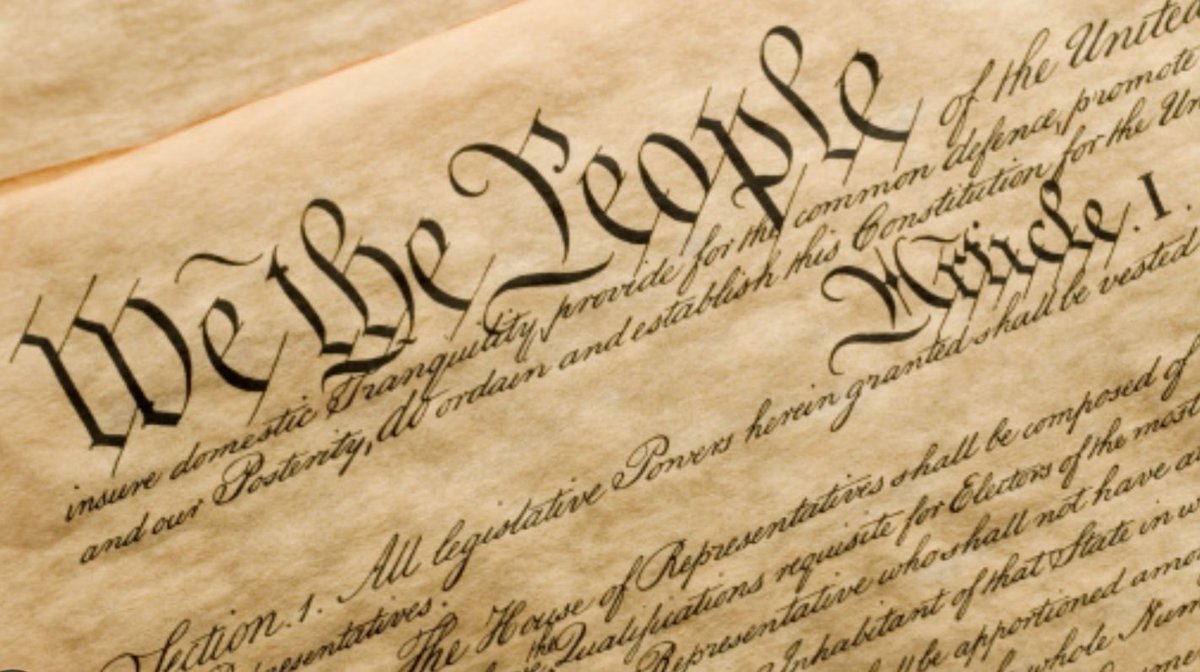 We the People of the United
insure domestic Tranquility, provide for the common defence, promote
and our Posterity, do ordain and establish this Constitution for the Un
Article. I.
Section. 1. All legislative Powers herein granted shall be vested
presentatives.
The House of Representatives shall be composed of
the Qualifications requisite for Electors of the most
Representative who shall not have a
Inhabitant of that State in w
ll be apportioned amo
whole Num